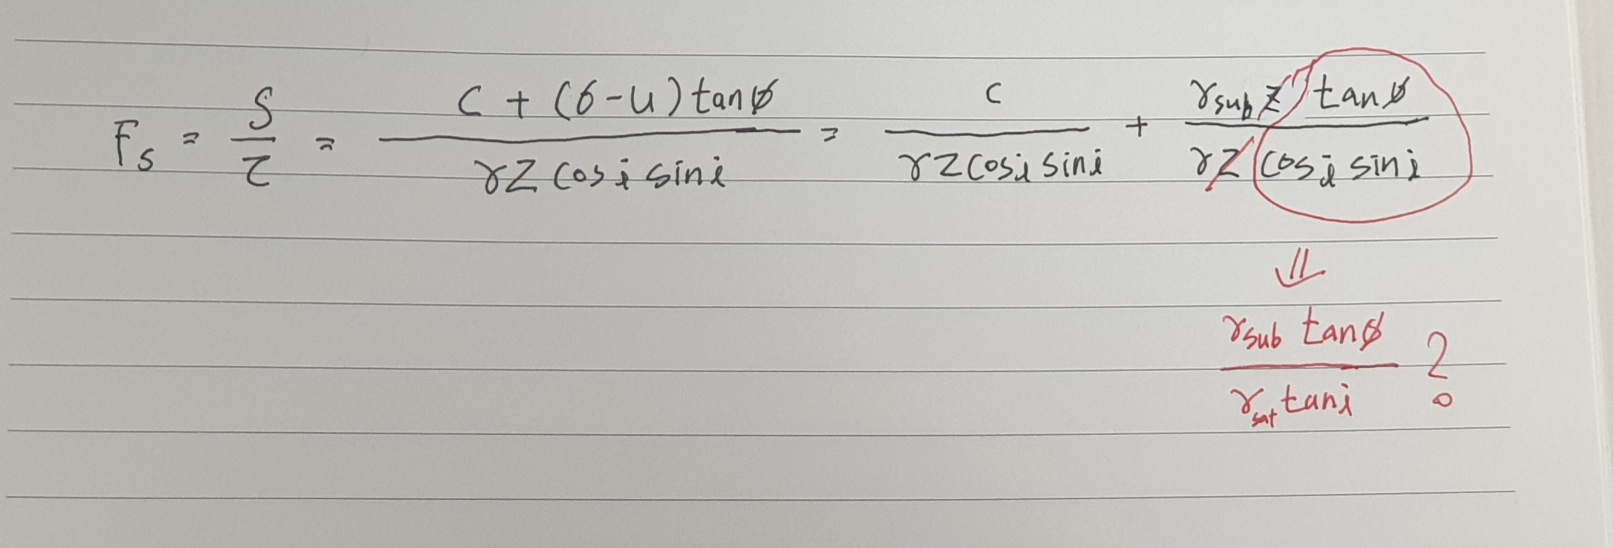 Fs = S/τ = C + (σ-u) tanφ / γZ cosi sini = C / γZ cosi sini + γsub Z tanφ / γZ cosi sini
⇓
γsub tanφ / γsat tani ?